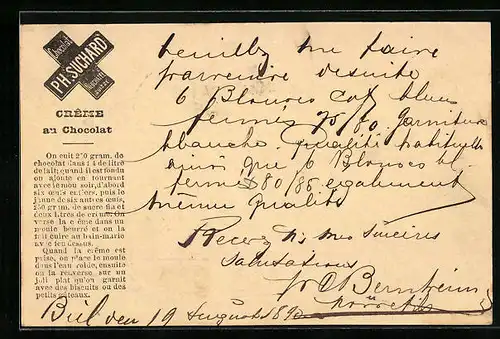 Chocolat
PH. SUCHARD
CRÈME
au Chocolat
On cuit 250 gram. de
chocolat dans 3/4 de litre
de lait; quand il est fondu
on ajoute en tournant
avec le moulinoir, d'abord
six œufs entiers, puis le
jaune de six autres œufs,
250 gram. de sucre fin et
deux litres de crème. On
verse la crème dans un
moule beurré et on la
fait cuire au bain-marie
avec feu dessus.
Quand la crème est
prise, on place le moule
dans l'eau froide, ensuite
on la renverse sur un
joli plat qu'on garnit
avec des biscuits ou des
petits gâteaux.
Veuillez me faire
parvenir desuite
6 Blouses cot bleu
fermés 75/80 garniture
blanche. Qualité habituelle
ainsi que 6 Blouses bl.
fermés 80/85 également
même qualité
Recevez Mr mes sincères
Salutations
pr C Bernheim
Biel den 19 Augusto 189